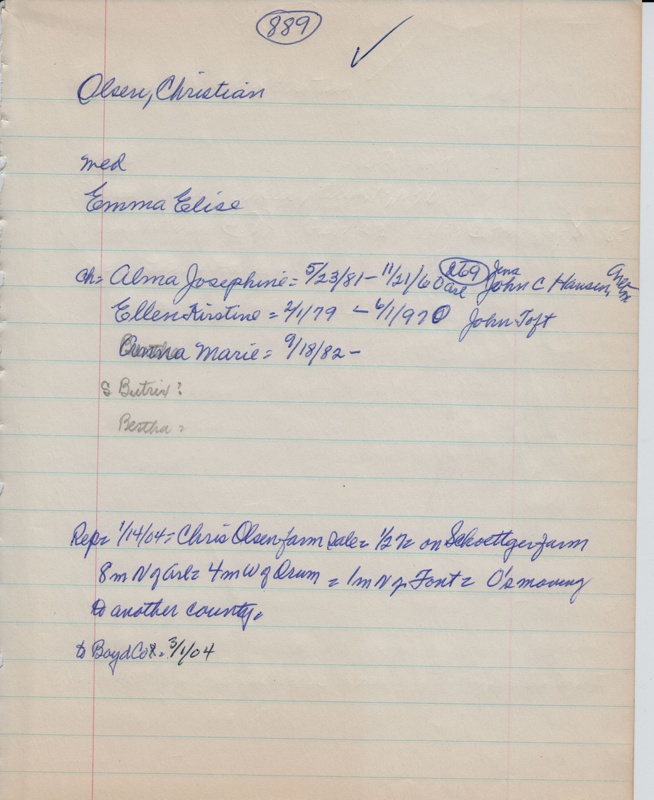 889
Olsen, Christian
med
Emma Elise
ch= Alma Josephine = 5/23/81 - 11/21/60 269 Arl Jens John C Hansen,
Ellen Kirstine = 2/1/79 - 6/1/97 John Toft
Marie = 9/18/82 -
S Butrix?
Bertha =
Rep= 1/14/04 = Chris Olsen farm Sale = 1/27 = on Schoettger farm
8 m N of Arl = 4 m W of Orum = 1 m N of Font = O's moving
to another county.
to Boyd Co = 3/1/04